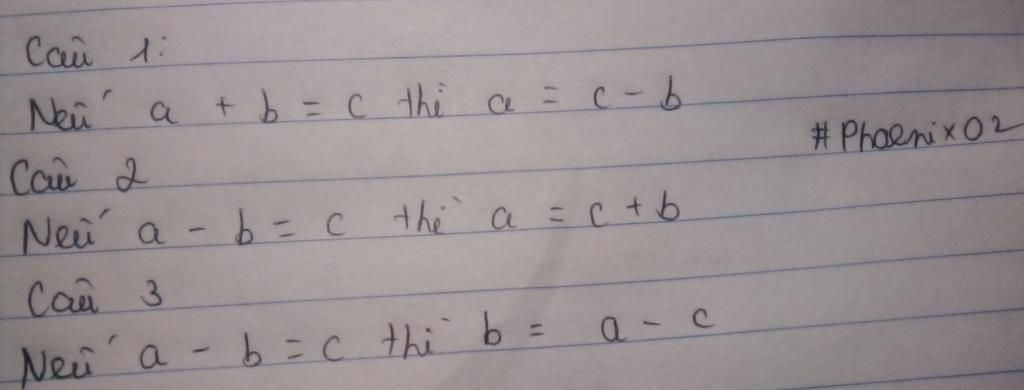 Câu 1:
Nếu a + b = c thì a = c - b
#Phoenix02
Câu 2
Nếu a - b = c thì a = c + b
Câu 3
Nếu a - b = c thì b = a - c